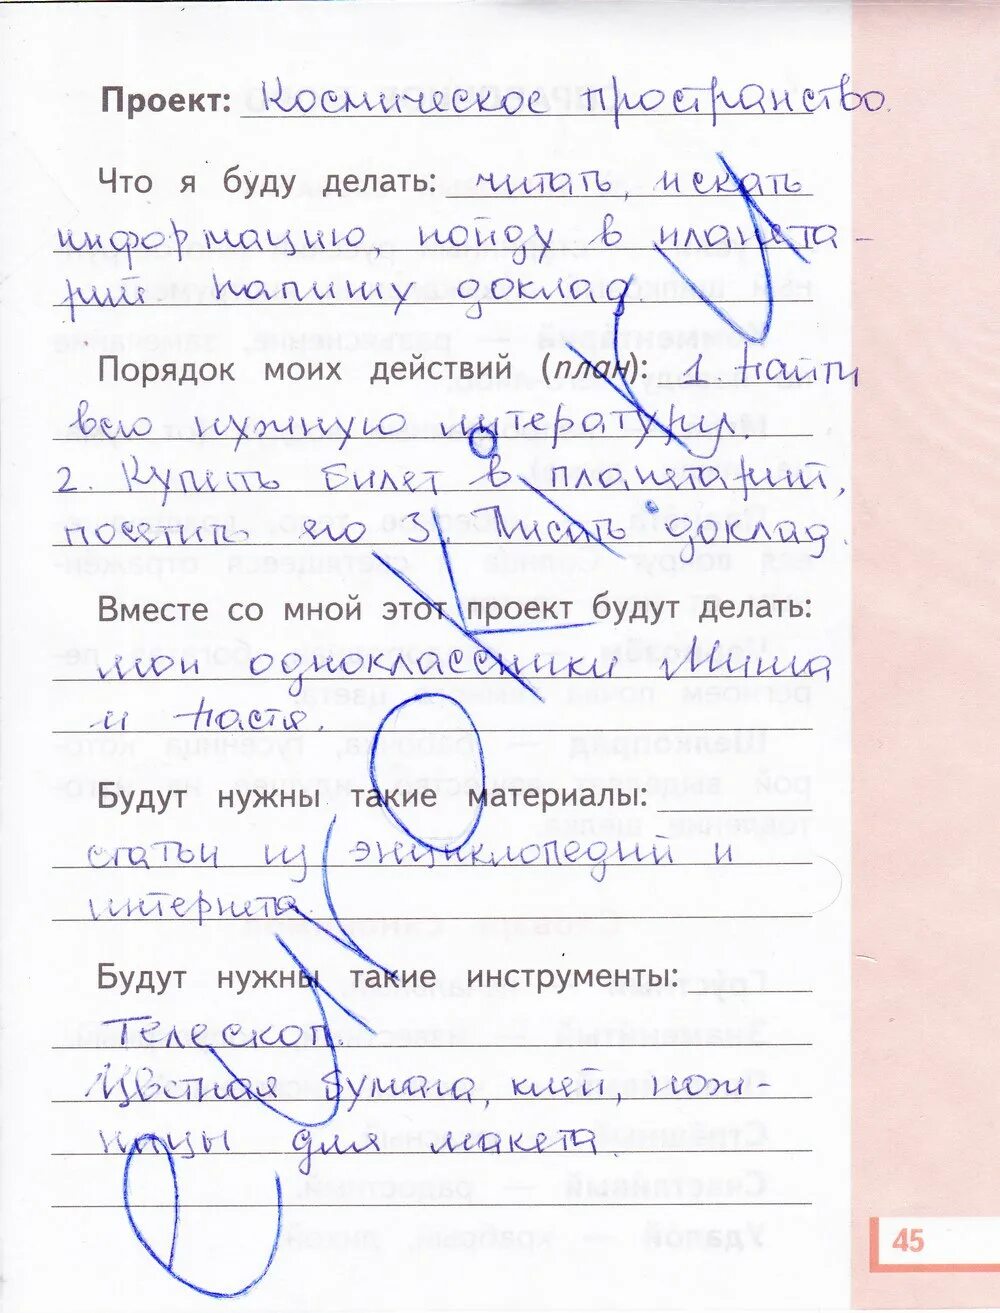 Проект: Космическое пространство.
Что я буду делать: читать, искать
информацию пойду в планета-
рий напишу доклад
Порядок моих действий (план): 1 Найти
всю нужную литературу.
2. Купить билет в планетарий,
посетить его 3. Писать доклад.
Вместе со мной этот проект будут делать:
мои одноклассники Миша
и Настя.
Будут нужны такие материалы:
статьи из энциклопедий и
интернета.
Будут нужны такие инструменты:
Телескоп.
Цветная бумага, клей, нож-
ницы для макета.
45